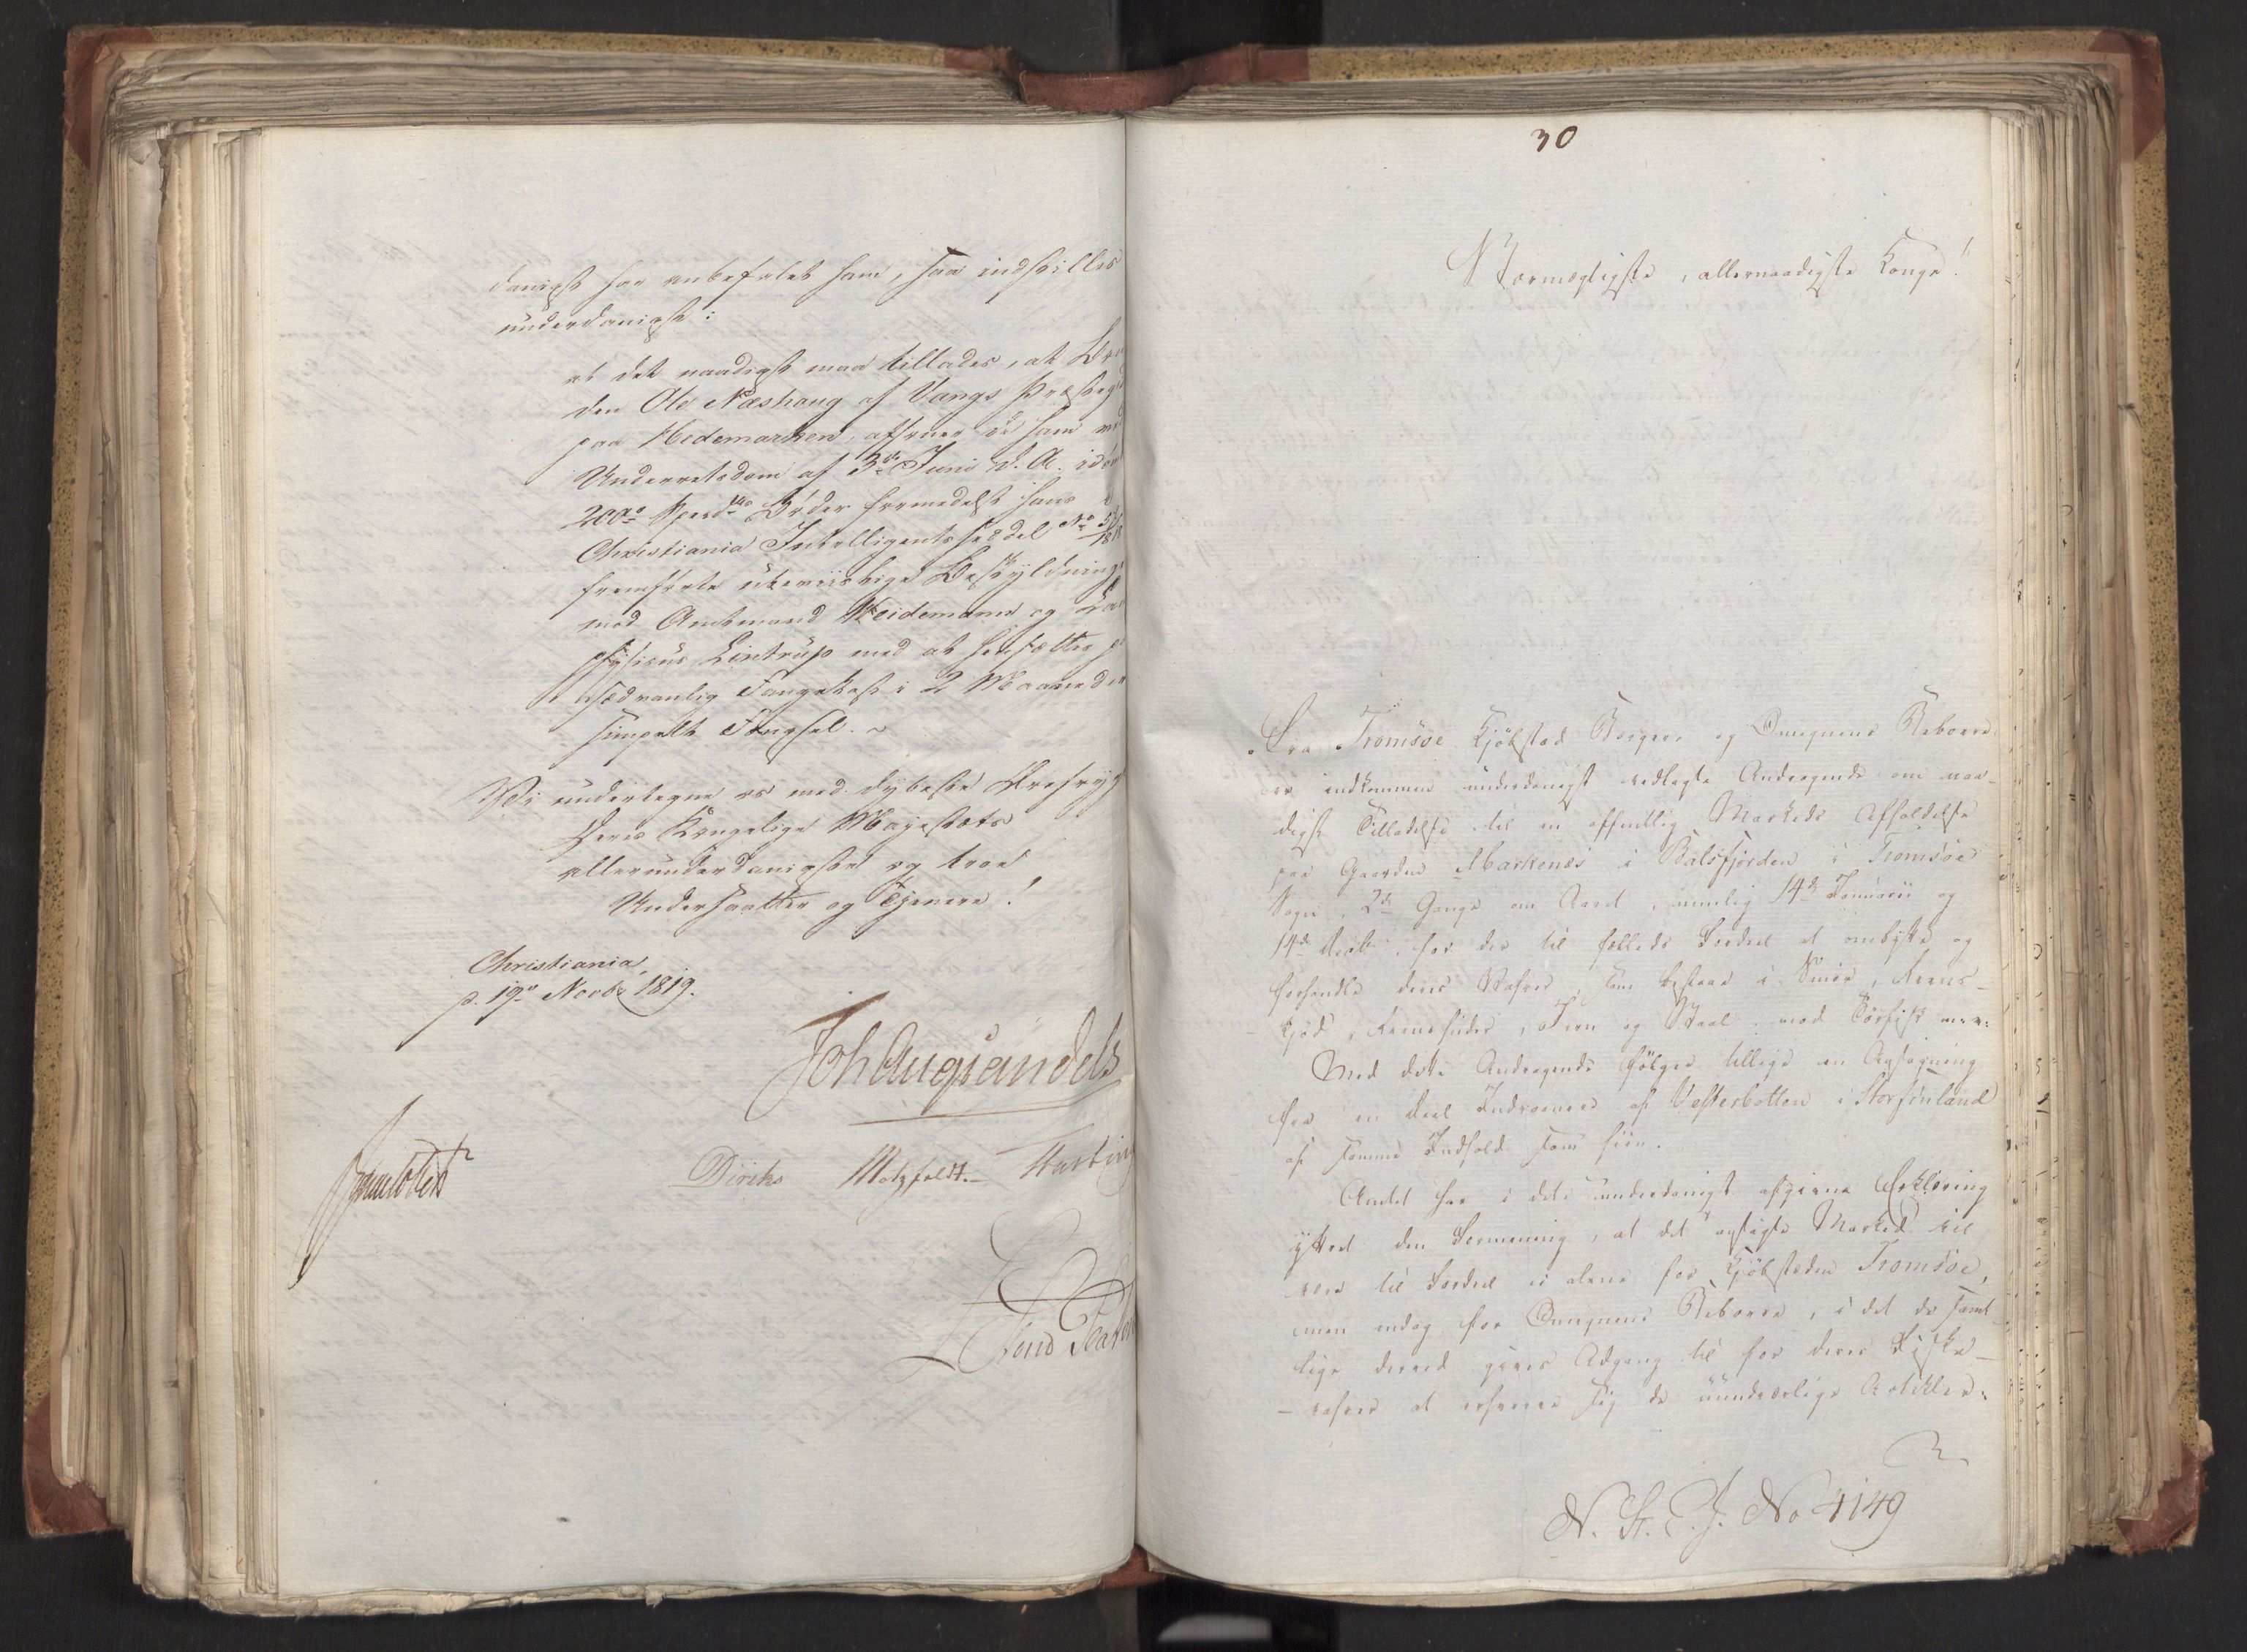 danigst har anbefalet ham, saa indstilles
underdanigst:
at det naadigst maa tillades, at
den Ole Næshaug af Vangs Præstegi
paa Hedemarken, afsoner de ham ved
Underretsdom af 3die Juni d. A. idøm
200 Spesd. Bøder formedelst hans i
Christiania Intelligentssedel No
fremførte ubeviislige Beskyldning
mod Amtmand Weidemann og Lan
physicus Lintrup med at hensættes p
sædvanlig Fangekost i 2 Maaneder
simpelt Fængsel.
Vi undertegne os med dybeste Ærefrygt
Deres Kongelige Majestæts
allerunderdanigste og troe
Undersaatter og Tjenere!
Christiania
p. 19 Novbr 1819.
Joh Aug Sandels
Diriks Motzfeldt.
30
Stormægtigste, allernaadigste Konge!
Fra Tromsöe Kjöbstad Borgere og Omegnens Beboere
er indkommen underdanigst vedlagte Andragende om naa-
digst Tilladelse til en offentlig Markeds Afholdelse
paa Gaarden Markenes i Balsfjorden i Tromsöe
Sogn, 2de Gange om Aaret, nemlig 14de Januarii og
14de for der til fælleds Fordeel at ombytte og
forhandle deres Vahrer, som bestaar i Smör, Reens-
kjöd, Reenshuder, Jern og Staal mod Törfisk m: v:
Med dette Andragende fölger tillige en Ansögning
fra en deel Indvaanere af Vesterbotten i Storfinland
af samme Indhold som hiin.
Amtet har i dets underdanigst afgivne Erklæring
yttret den Formening, at det ansögte Marked vil
være til Fordeel ei alene for Kjöbstaden Tromsöe,
men endog for Omegnens Beboere, i det de samt-
lige derved gives Adgang til for deres Fiske-
vahrer at erhverve sig de uundværlige Artikler:
N. St. E. J. No 4149